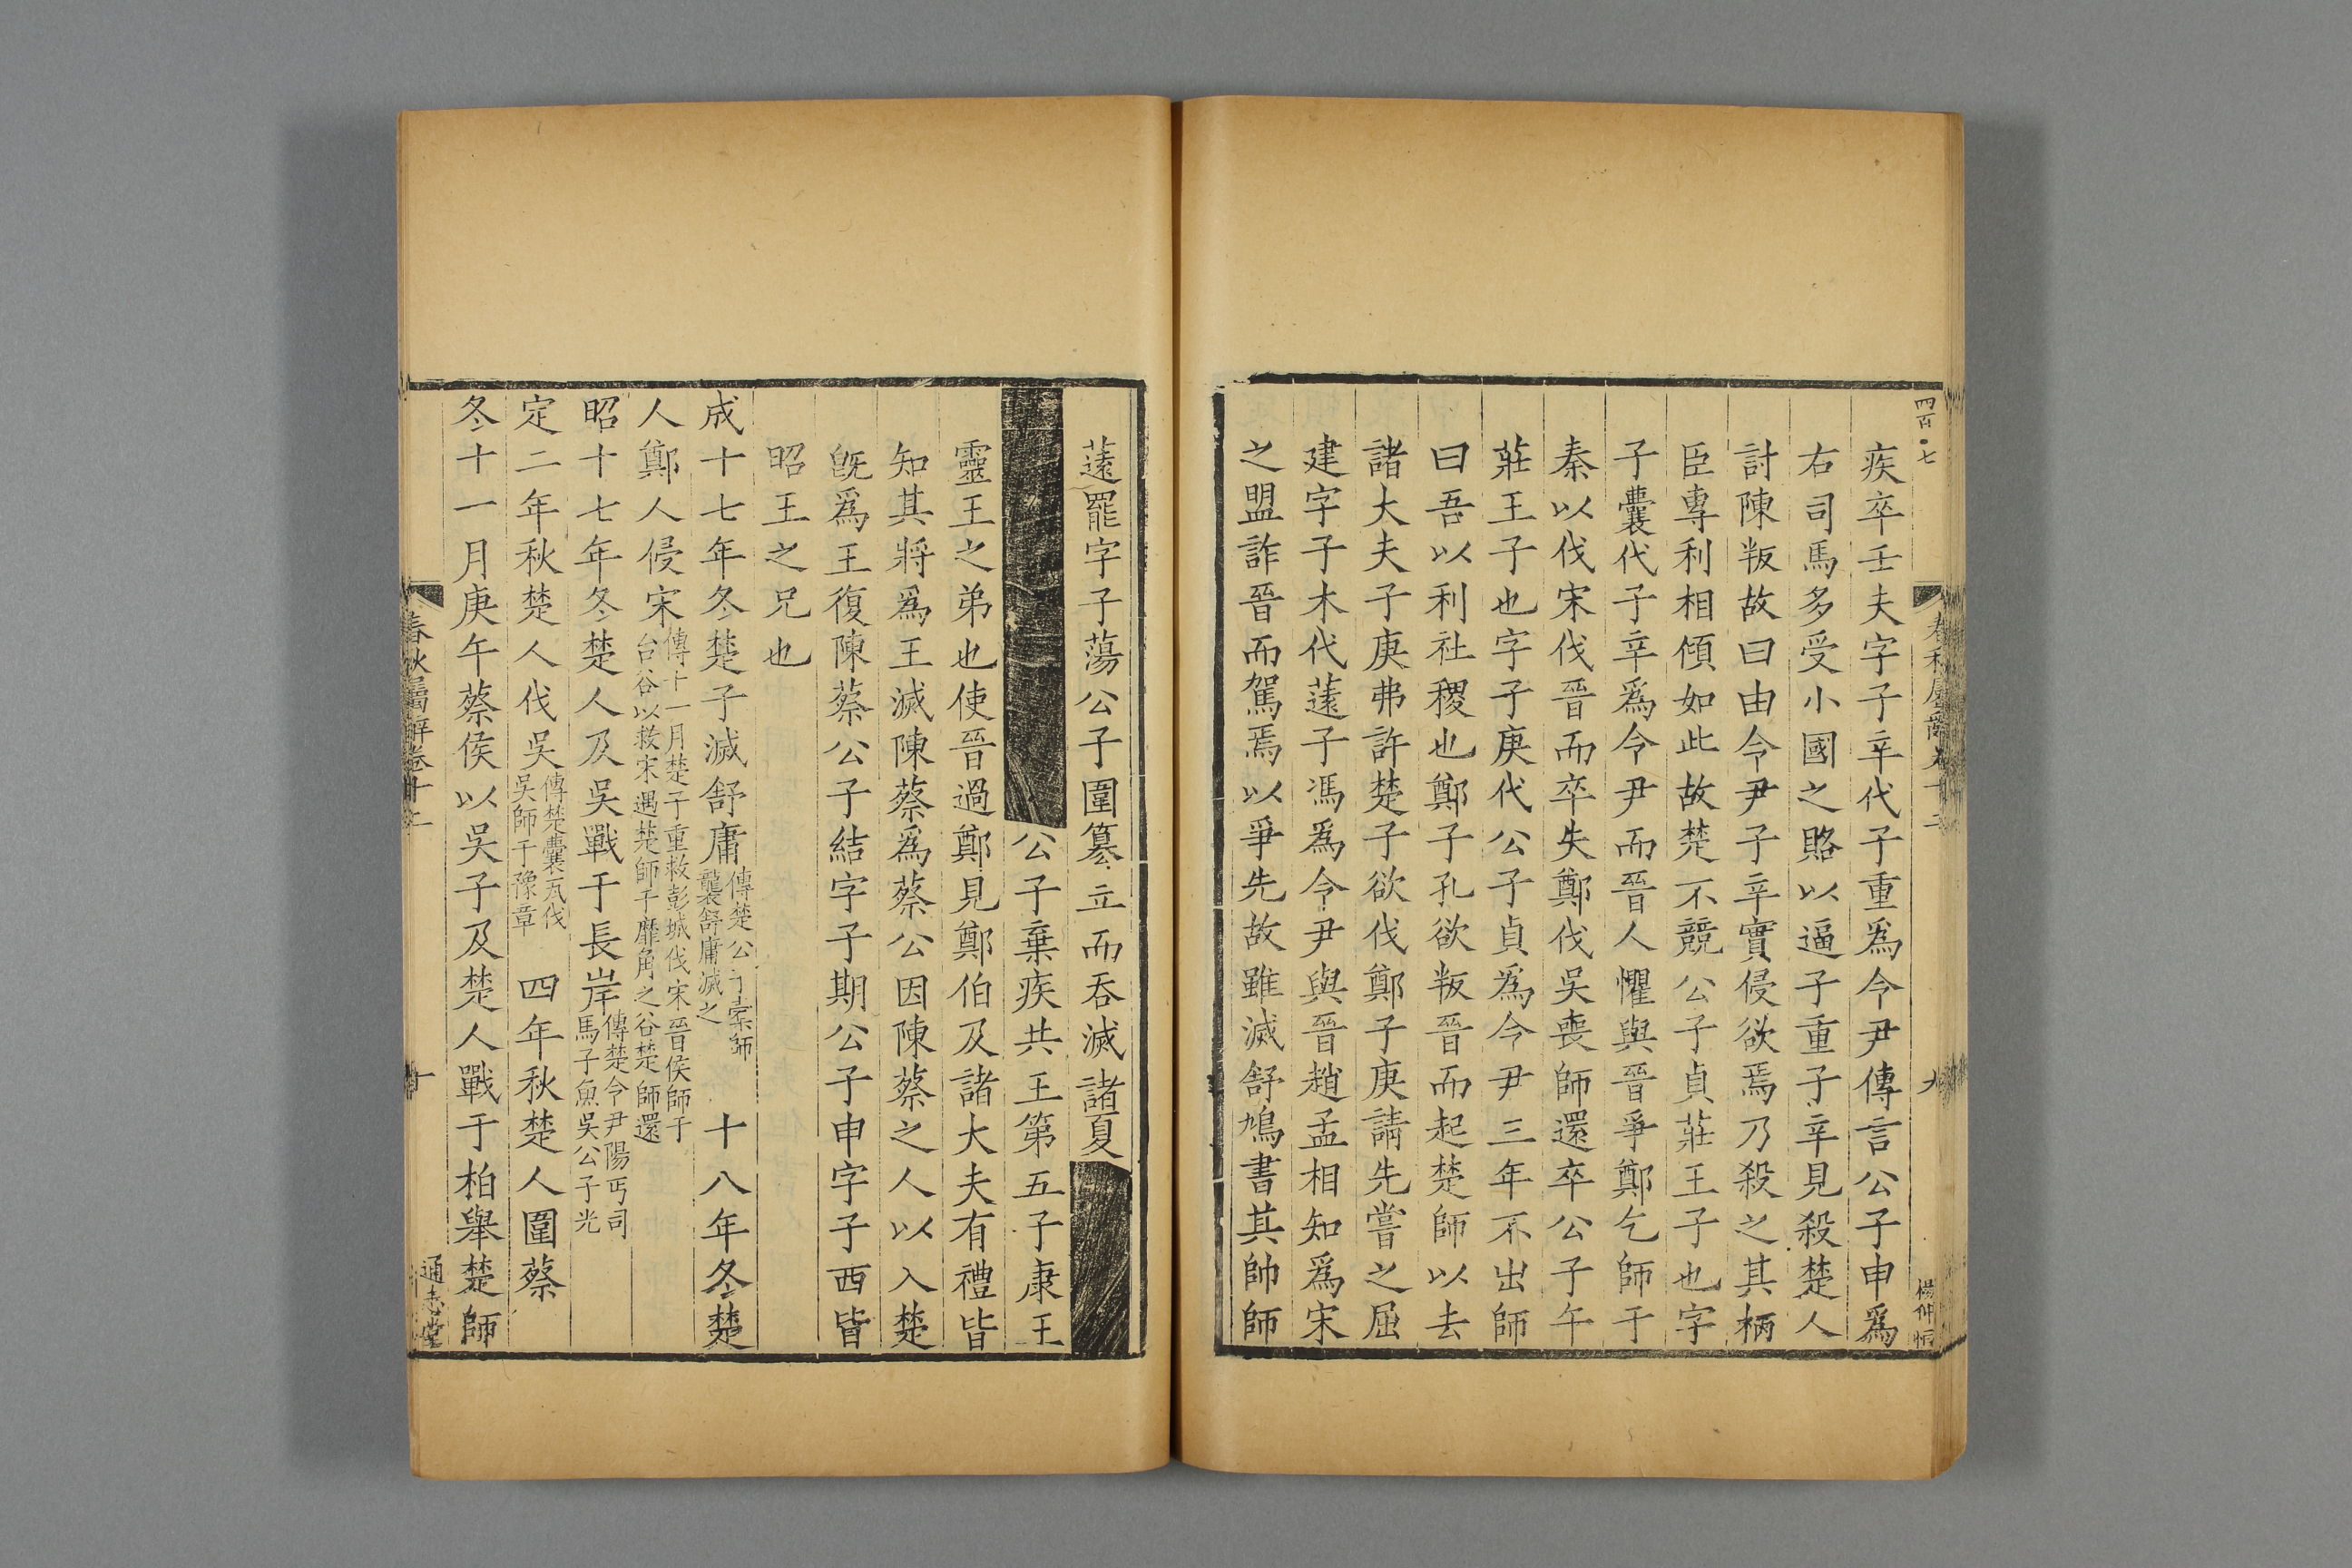 四百七
春秋屬辭卷十二
九
楊仲恒
疾卒壬夫字子辛代子重爲令尹傳言公子申爲
右司馬多受小國之賂以逼子重子辛見殺楚人
討陳叛故曰由令尹子辛實侵欲焉乃殺之其柄
臣專利相傾如此故楚不競公子貞莊王子也字
子囊代子辛爲令尹而晉人懼與晉爭鄭乞師于
秦以伐宋伐晉而卒失鄭伐吳喪師還卒公子午
莊王子也字子庚代公子貞爲令尹三年不出師
曰吾以利社稷也鄭子孔欲叛晉而起楚師以去
諸大夫子庚弗許楚子欲伐鄭子庚請先嘗之屈
建字子木代薳子馮爲令尹與晉趙孟相知爲宋
之盟詐晉而駕焉以爭先故雖滅舒鳩書其帥師
薳罷字子蕩公子圍篡立而吞滅諸夏
公子棄疾共王第五子康王
靈王之弟也使晉過鄭見鄭伯及諸大夫有禮皆
知其將爲王滅陳蔡爲蔡公因陳蔡之人以入楚
旣爲王復陳蔡公子結字子期公子申字子西皆
昭王之兄也
成十七年冬楚子滅舒庸傳楚公子橐師襲舒庸滅之 十八年冬楚
人鄭人侵宋傳十一月楚子重救彭城伐宋晉侯師于台谷以救宋遇楚師于靡角之谷楚師還
昭十七年冬楚人及吳戰于長岸傳楚令尹陽丐司馬子魚吳公子光
定二年秋楚人伐吳傳楚囊瓦伐吳師于豫章 四年秋楚人圍蔡
冬十一月庚午蔡侯以吳子及楚人戰于柏舉楚師
春秋屬辭卷十二
十
通志堂